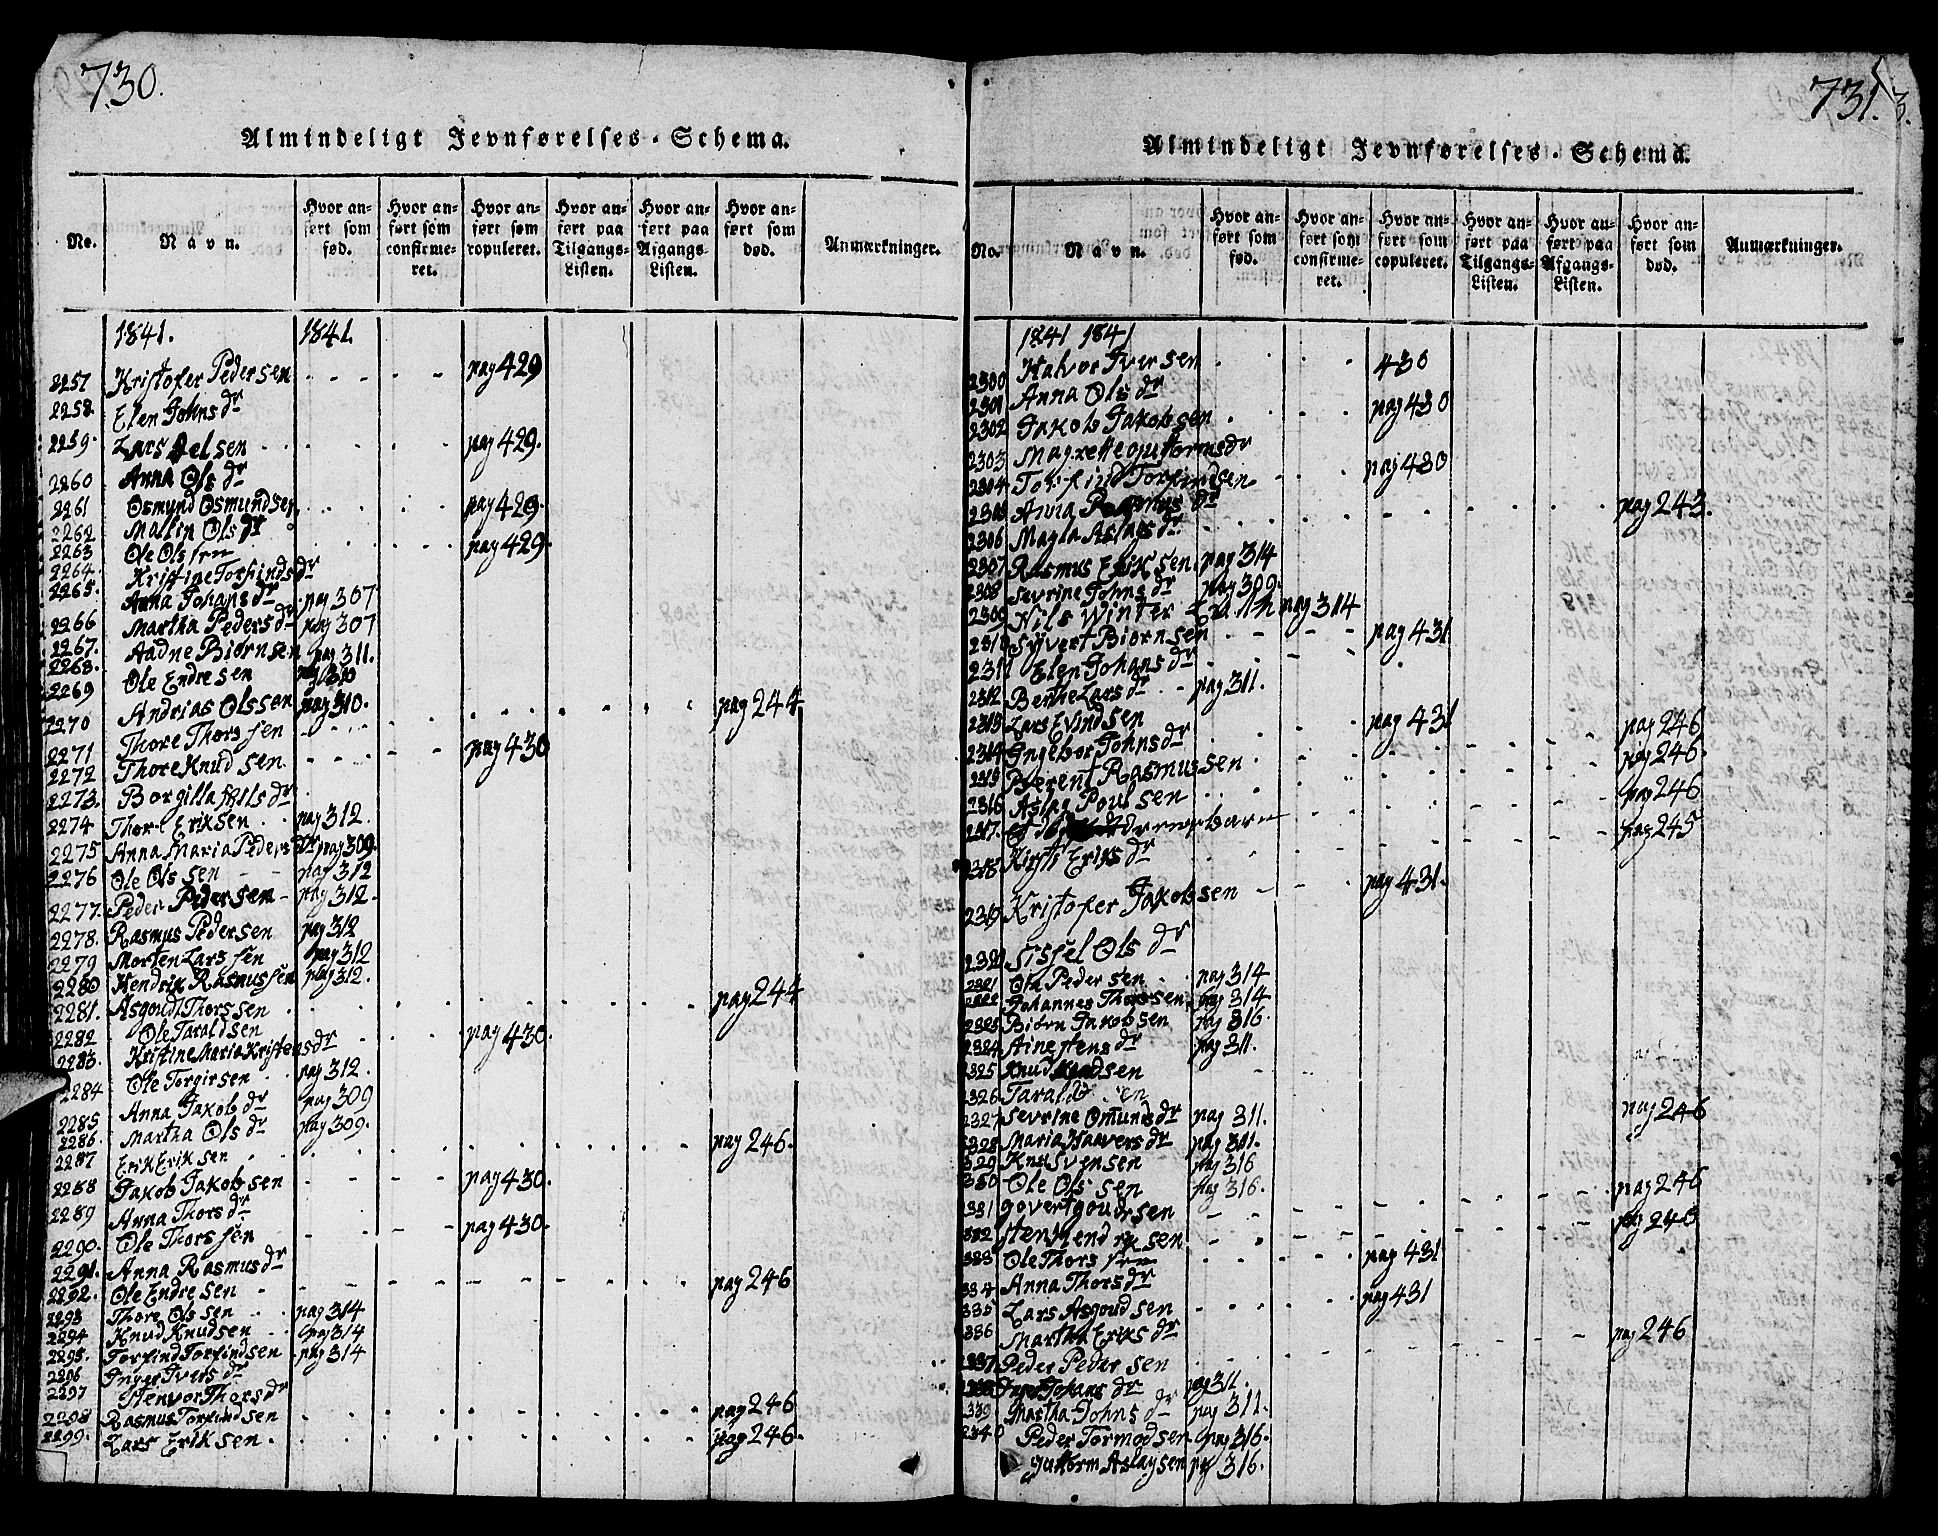 730.
Almindeligt Jevnførelses-Schema.
No. Navn. Hvor anført som fød. Hvor anført som confirmeret. Hvor anført som copuleret. Hvor anført paa Tilgangs-Listen. Hvor anført paa Afgangs-Listen. Hvor anført som død. Anmærkninger.
1841. 1841.
2257 Kristofer Pedersen pag 429
2258. Elen Johns dr
2259. Lars Oelsen pag 429.
2260 Anna Ols dr
2261 Osmynd Osmundsen pag 429.
2262 Mallin Ols dr
2263 Ole Olssen pag 429.
2264. Kristine Torfinds dr
2265. Anna Johans dr pag 307
2266 Martha Peders dr pag 307
2267. Aadne Biørnsen pag 311.
2268. Ole Endresen pag 310
2269 Andrias Olssen pag 310.
2270 Thore Thorssen pag 244
2271 Thore Knudsen pag 430
2272 Borgilla Nils dr
2273.
2274 Thore Eriksen pag 312.
2275 Anna Maria Peders dr pag 309.
2276 Ole Olssen pag 312
2277. Peder Pedersen pag 312.
2278. Rasmus Pedersen pag 312
2279 Morten Larssen pag 312
2280 Hendrik Rasmussen pag 312.
2281. Asgoudt Thorssen pag 244
2282 Ole Taraldsen pag 430.
2283. Kristine Maria Kristens dr
2284 Ole Torgirsen pag 312.
Anna Jakob dr pag 309
2285 Martha Ols dr pag 309.
2286.
2287 Erik Eriksen pag 246.
2288 Jakob Jakobsen pag 430.
2289 Anna Thors dr
2290. Ole Thorssen pag 430.
2291. Anna Rasmus dr
2292. Ole Endresen pag 246
2293 Thore Olssen pag 314
2294 Knud Knudsen pag 314
2295. Torfind Torfindsen pag 314
2296 Inger Ivers dr
2297 Stenvor Thors dr
2298 Rasmus Torfindsen pag 246
2299. Lars Eriksen. pag 246.
731.
3.
Almindeligt Jevnførelses-Schema.
No. Navn. Hvor anført som fød. Hvor anført som confirmeret. Hvor anført som copuleret. Hvor anført paa Tilgangs-Listen. Hvor anført paa Afgangs-Listen. Hvor anført som død. Anmærkninger.
1841 1841
2300 Halvor Iversen 430
2301 Anna Ols dr
2302 Jakob Jakobsen pag 430
2303 Magrethe Guttorms dr
2304 Torfind Torfindsen pag 430
2305 Anna Rasmus dr
2306 Magla Aslags dr pag 243.
2307 Rasmus Eriksen pag 314
2308 Sevrine Johns dr pag 309.
2309 Nils Winter pag 314
2310 Syvert Biørnsen pag 431
2311 Elen Johans dr
2312 Berthe Lars dr pag 311.
2313 Lars Evindsen pag 431
2314 Ingebor Johns dr pag 246
2315 Berent Rasmussen pag 246.
2316 Aslag Poulsen pag 246
2317. barn pag 245
2318 Kirsti Eriks dr
2319 Kristofer Jakobsen pag 431.
2320 Sissel Ols dr
2321 Ole Pedersen pag 314
2322 Johannes Thorssen pag 314
2323 Biørn Jakobsen pag 316.
2324 Ane Stens dr pag 311.
2325 Knud Knudsen
2326 Tarald sen pag 246
2327 Sevrine Omunds dr pag 311.
2328 Maria Haavers dr pag 311.
329 Knu Svensen pag 316
330 Ole Olssen pag 316.
331 Govert Goudsen pag 246
332 Sten Hendryksen pag 246
333 Ole Thorssen pag 431
334 Anna Thors dr
335 Lars Asgoudsen pag 431
336 Martha Eriks dr
337 Peder Pedersen pag 246
Inger Johans dr pag 311.
339 Martha Johns dr pag 311.
2340 Peder Tormodsen pag 316.
Guttorm Aslagsen pag 316.